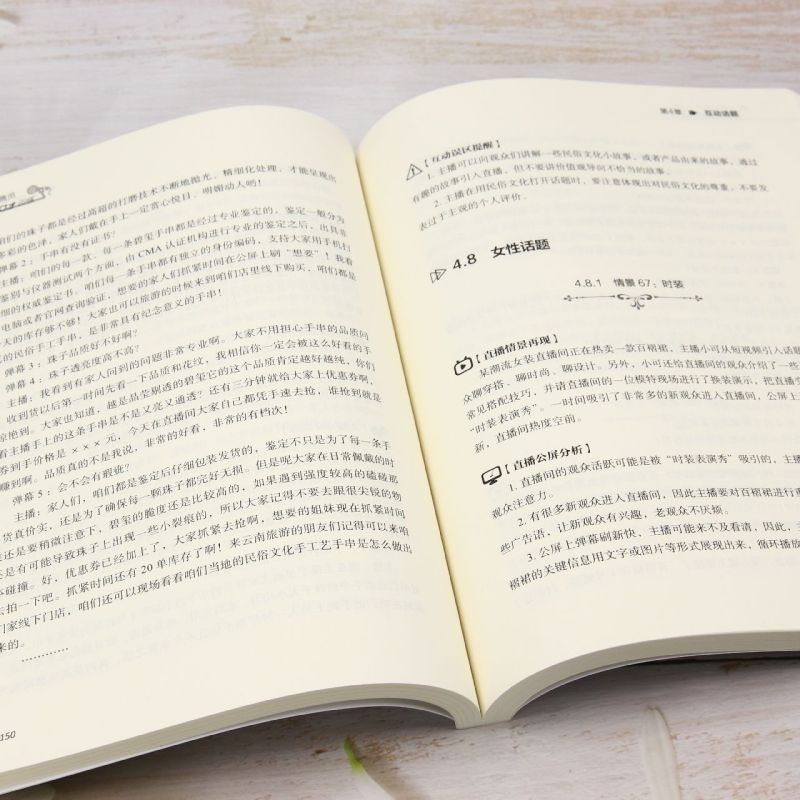 们的珠子都是经过高超的打磨技术不断地抛光、精细化处理，才能呈现出
多彩的色泽，家人们戴在手上一定赏心悦目、明媚动人哟！
弹幕 2：手串有没有证书？
主播：咱们的每一款、每一条碧玺手串都是经过专业鉴定的，鉴定一般分为
鉴别与仪器测试两个方面，由 CMA 认证机构进行专业的鉴定之后，出具非
细的权威鉴定书。咱们每一条手串都有独立的身份编码，支持大家用手机扫
电脑或者官网查询验证，想要的家人们抓紧时间在公屏上刷“想要”！我看
天的库存够不够！大家也可以旅游的时候来到咱们店里线下购买，咱们都是
的民俗手工手串，是非常具有纪念意义的手串！
弹幕 3：珠子品质好不好啊？
弹幕 4：珠子透亮度高不高？
主播：我看到有家人问到的问题非常专业啊。大家不用担心手串的品质问
收到货以后第一时间先看一下品质和花纹，我相信你一定会被这么好看的手
惊艳到。大家也知道，越是品莹剔透的碧玺它的这个品质肯定越好越纯，你们
看主播手上的这条手串是不是又亮又通透？还有三分钟就给大家上优惠券啊，
券到手价格是 ×××元，今天在直播间大家自己都凭手速去抢，谁抢到就是
赚到啊。品质真的不是我说，非常的好看，非常的有档次！
弹幕 5：会不会有瑕疵？
主播：家人们，咱们都是鉴定后仔细包装发货的，鉴定不只是为了每一条手
货真价实，还是为了确保每一颗珠子都完好无损。但是呢大家在日常佩戴的时
还是要稍微注意下，碧玺的脆度还是比较高的，如果遇到强度较高的磕碰那
是有可能导致珠子上出现一些小裂痕的，所以大家记得不要去跟很尖锐的物
碰撞。好，优惠券已经加上了，大家抓紧去抢啊，想要的姐妹现在抓紧时间
去拍一下吧。抓紧时间还有 20 单库存了啊！来云南旅游的朋友们记得可以来咱
们家线下门店，咱们还可以现场看看咱们当地的民俗文化手工艺手串是怎么做出
来的。
…………
150
第4章 互动话题
【互动误区提醒】
1. 主播可以向观众们讲解一些民俗文化小故事，或者产品由来的故事，通过
有趣的故事引人直播，但不要讲价值观导向不恰当的故事。
2. 主播在用民俗文化打开话题时，要注意体现出对民俗文化的尊重，不要发
表过于主观的个人评价。
4.8 女性话题
4.8.1 情景 67：时装
【直播情景再现】
某潮流女装直播间正在热卖一款百褶裙，主播小可从短视频引入话题
众聊穿搭、聊时尚、聊设计。另外，小可还给直播间的观众介绍了一些
常见搭配技巧，并请直播间的一位模特现场进行了换装演示，把直播
“时装表演秀”。一时间吸引了非常多的新观众进入直播间，公屏上
新，直播间热度空前。
【直播公屏分析】
1. 直播间的观众活跃可能是被“时装表演秀”吸引的，主
观众注意力。
2. 有很多新观众进入直播间，因此主播要对百褶裙进行
些广告语，让新观众有兴趣，老观众不厌烦。
3. 公屏上弹幕刷新快，主播可能来不及看清，因此，主
褶裙的关键信息用文字或图片等形式展现出来，循环播放